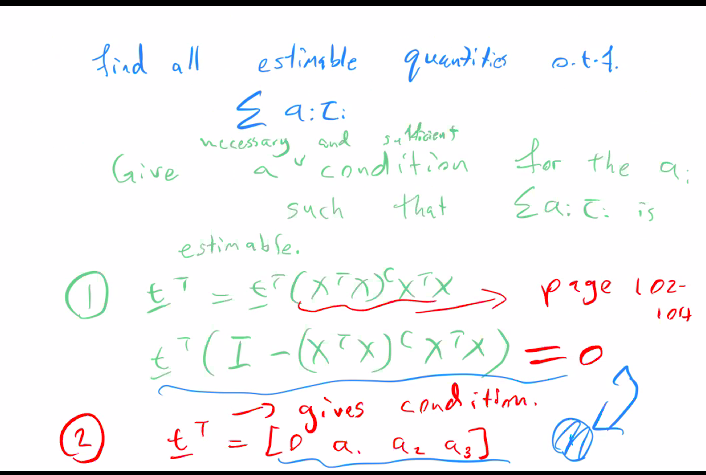 find all estimable quantities o.t.f.
Σ aᵢτᵢ
necessary and sufficient
Give a ˅ condition for the aᵢ
such that Σaᵢτᵢ is
estimable.
① t^T = t^T(X^TX)^c X^TX → page 102-
104
t^T(I - (X^TX)^c X^TX) = 0
→ gives condition.
② t^T = [0 a₁ a₂ a₃]